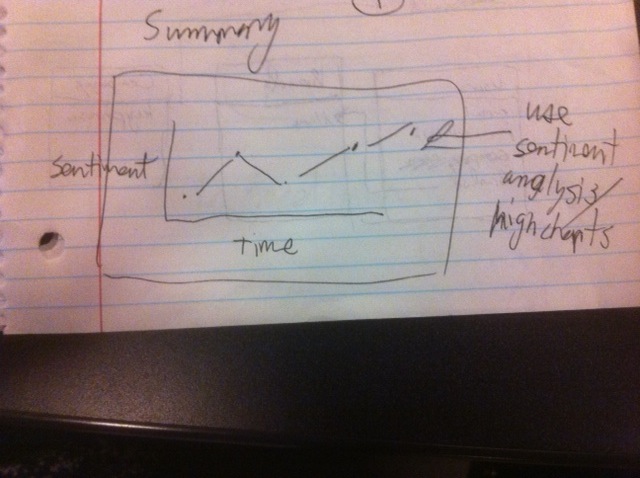 1
Summary
sentiment
Time
use
sentiment
analysis/
highcharts